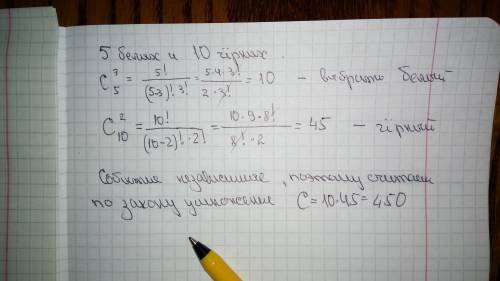 5 белых и 10 чёрных.
C₅³ = 5! / (5-3)!·3! = 5·4·3! / 2·3! = 10 – выбрать белый
C₁₀² = 10! / (10-2)!·2! = 10·9·8! / 8!·2 = 45 – чёрный
События независимые, поэтому считаем
по закону умножения C = 10·45 = 450